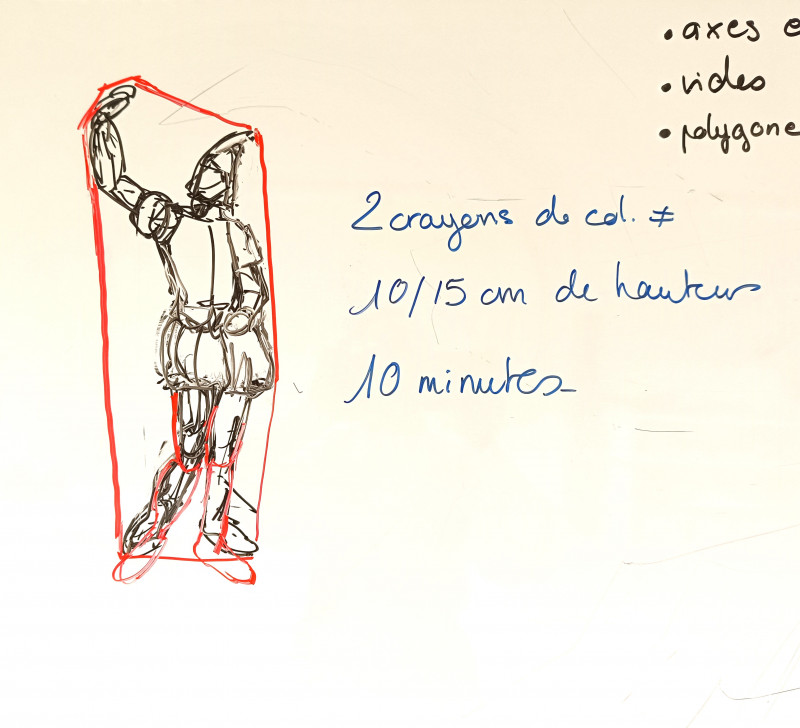 • axes e
• vides
• polygone
2 crayons de col. ≠
10/15 cm de hauteur
10 minutes